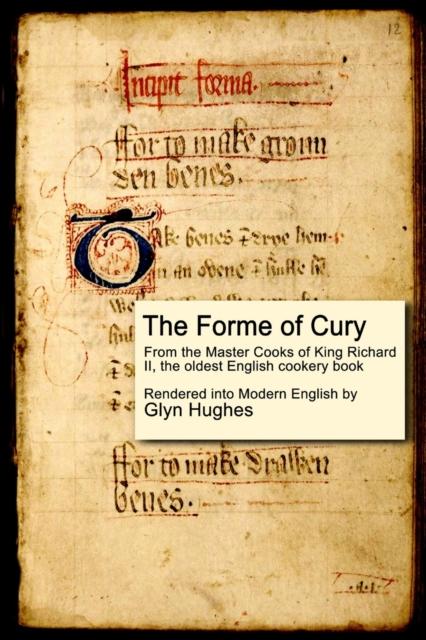 12
Incipit forma.
ffor to make groun
den benes.
Take benes ⁊ drye hem
in an ovene ⁊
The Forme of Cury
From the Master Cooks of King Richard
II, the oldest English cookery book
Rendered into Modern English by
Glyn Hughes
ffor to make drawen
benes.